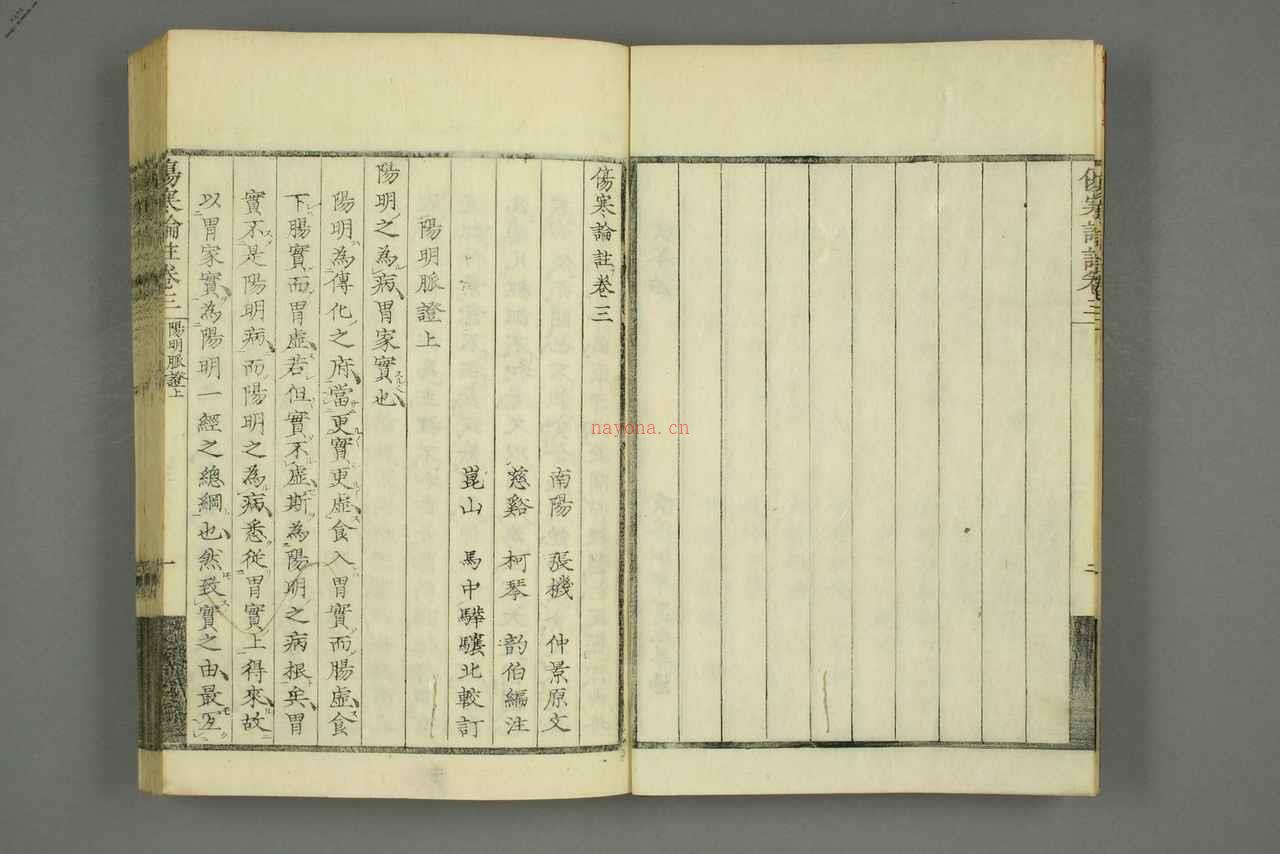 傷寒論註卷三
二
傷寒論註卷三
南陽 張機 仲景原文
慈谿 柯琴 韵伯編注
崑山 馬中驊驤北較訂
陽明脈證上
陽明之為病胃家實也
陽明為傳化之府當更實更虛食入胃實而腸虛食
下腸實而胃虛若但實不虛斯為陽明之病根矣胃
實不是陽明病而陽明之為病悉從胃實上得來故
以胃家實為陽明一經之總綱也然致實之由最宜
傷寒論註卷三
陽明脈證上
一
nayona.cn